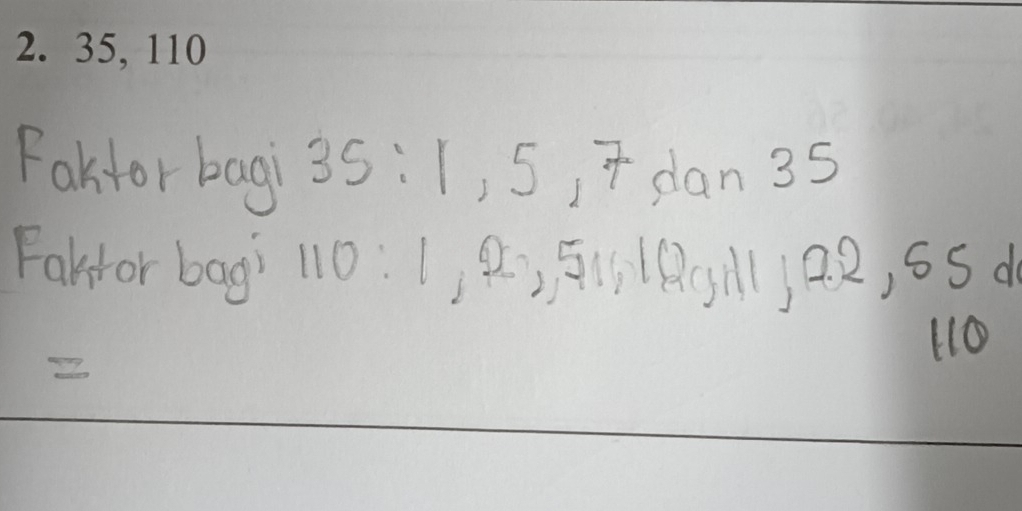 2. 35, 110
Faktor bagi 35 : 1, 5, 7 dan 35
Faktor bagi 110 : 1, 2, 5, 10, 11, 22, 55 d
110
=